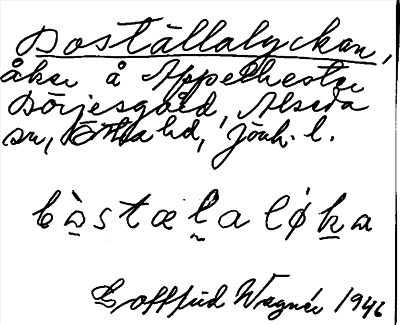 Boställalyckan,
åker å Appelhester
Börjesgård, Alseda
sn, Östra hd, Jönk. l.
bòstæla løka
Gottfrid Wagnér 1946